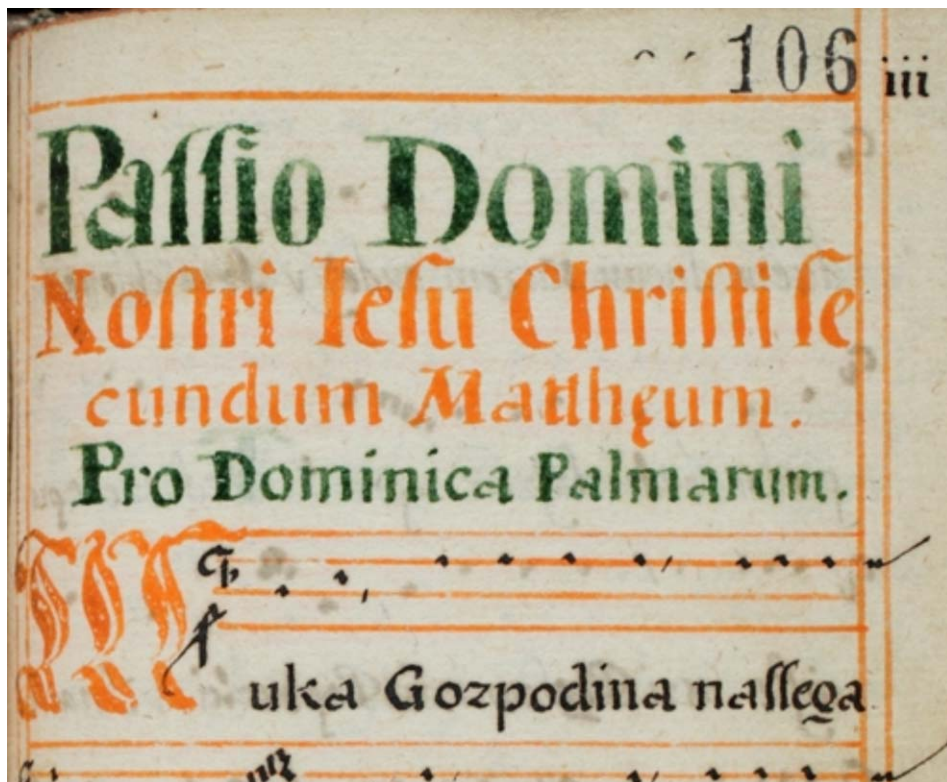 106 iii
Paſſio Domini
Noſtri Ieſu Chriſti ſe
cundum Matthęum.
Pro Dominica Palmarum.
Muka Gozpodina naſſega